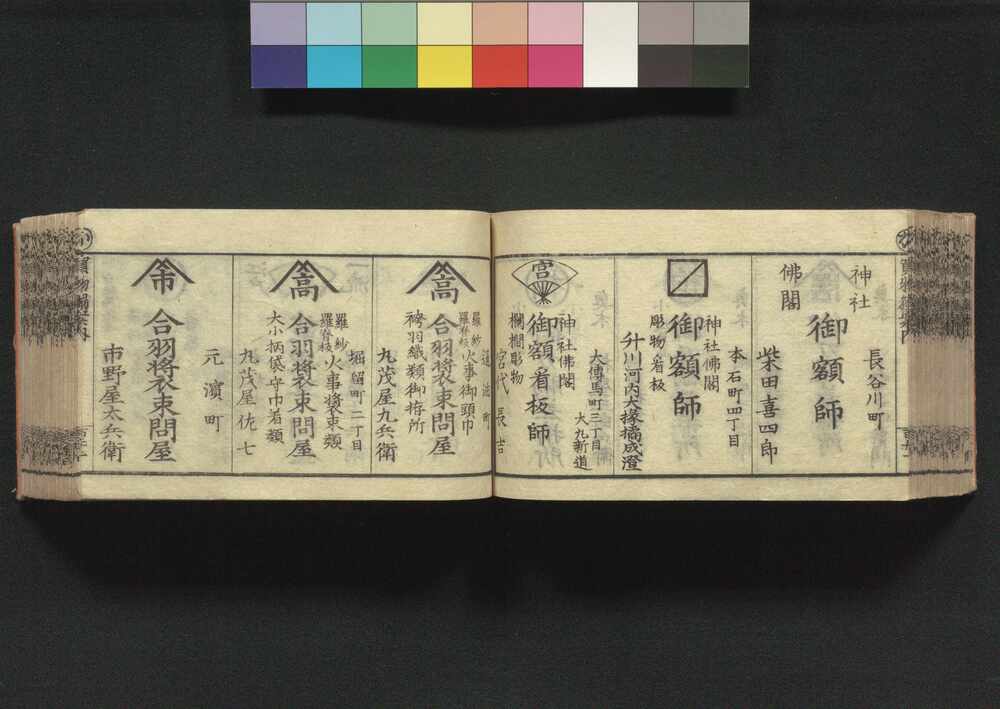 神社
佛閣
御額師
長谷川町
柴田喜四郎
神社佛閣
御額師
彫物看板
本石町四丁目
升川河内大掾橘成澄
宮
神社佛閣
御額看板師
欄間彫物
大傳馬町三丁目
大九新道
宮代長吉
通油町
羅紗
羅脊板
火事御頭巾
合羽将衣束問屋
袴羽織類御将所
丸茂屋九兵衛
堀留町二丁目
羅紗
羅脊板
火事将衣束類
合羽将衣束問屋
大小柄袋守巾着類
丸茂屋佐七
元濱町
合羽将衣束問屋
市野屋太兵衛